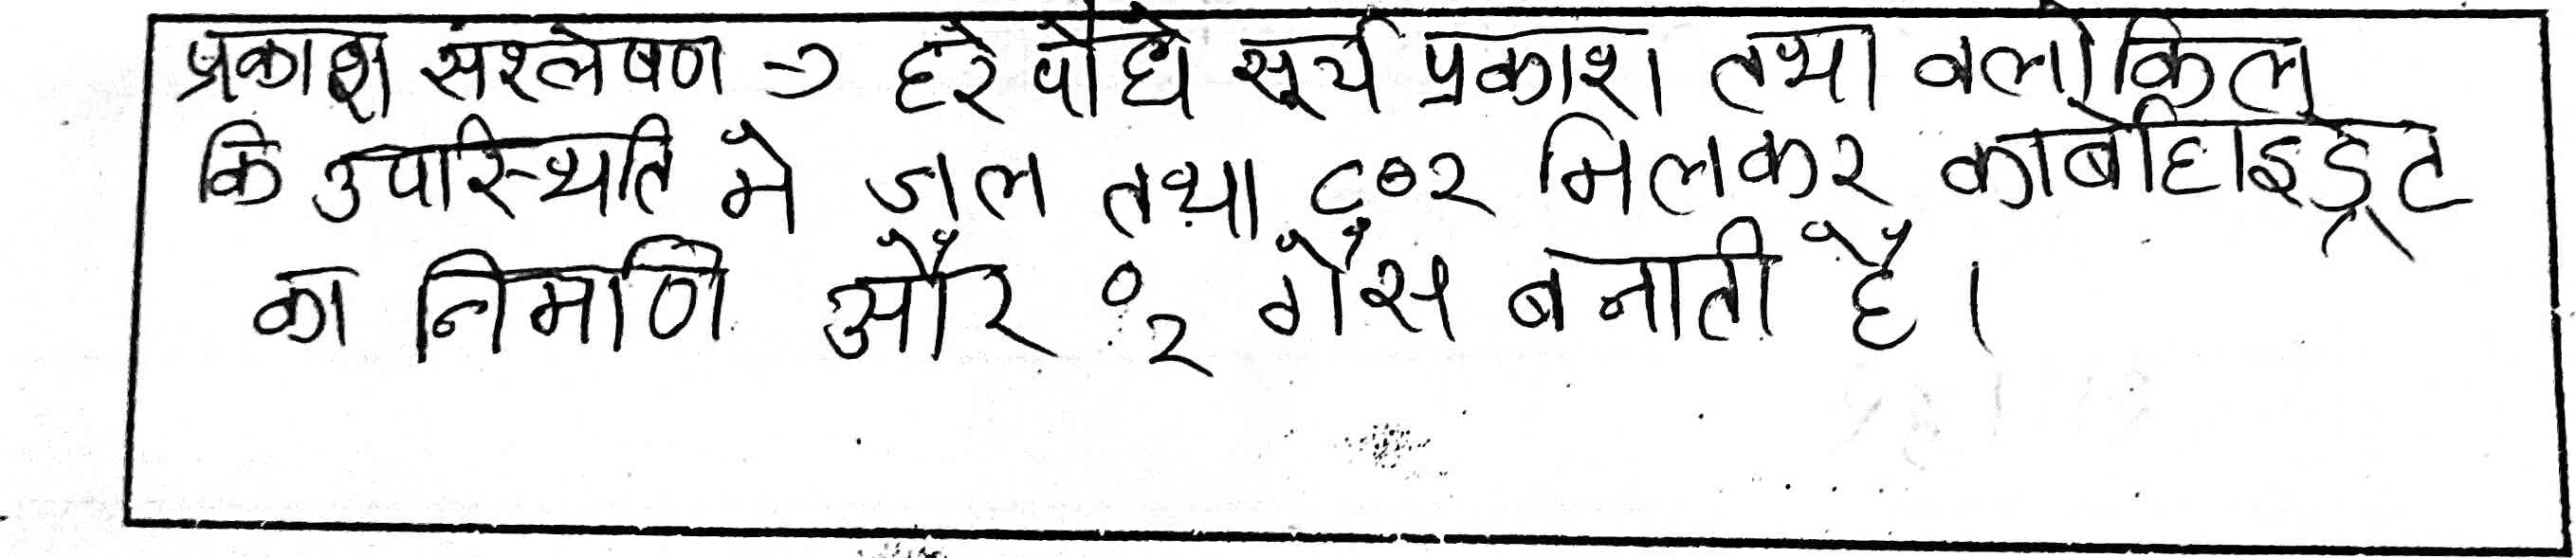 प्रकाश संश्लेषण → हरे पौधे सूर्य प्रकाश तथा क्लोकिल
कि उपस्थिति मे जल तथा CO2 मिलकर कार्बोहाइड्रट
का निर्माण और O2 गैंस बनाती है।